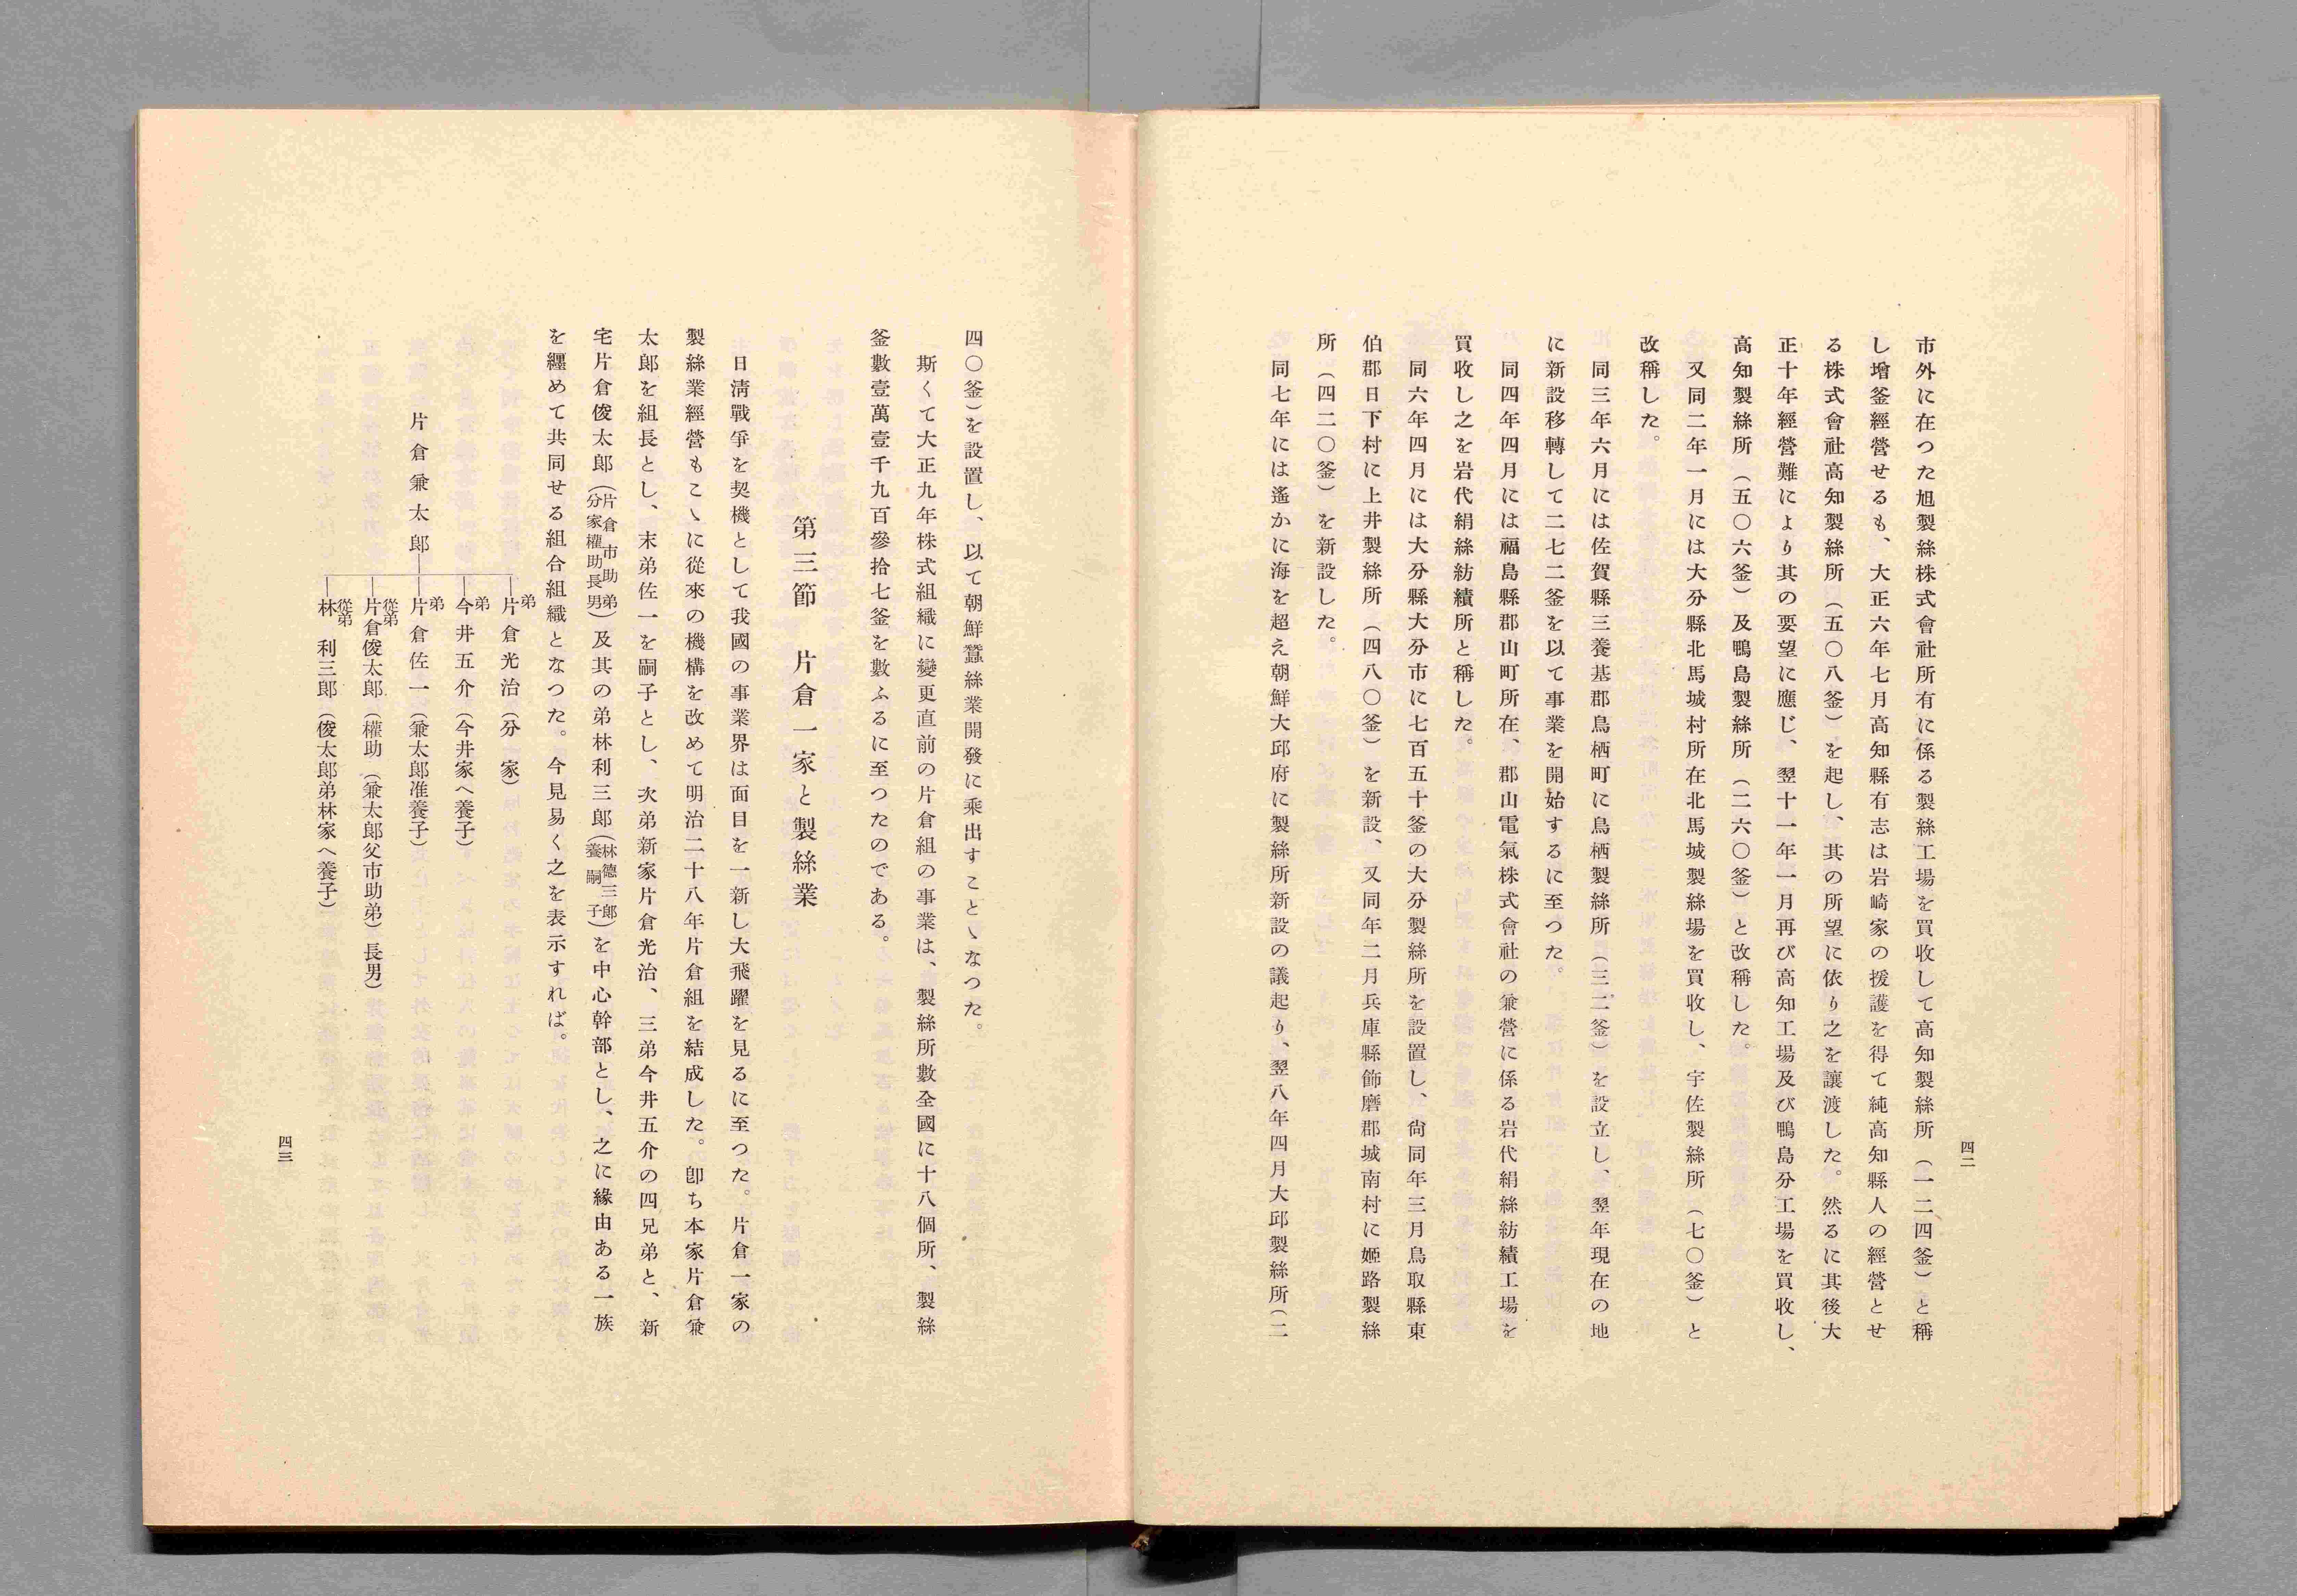 四二
市外に在つた旭製絲株式會社所有に係る製絲工場を買收して高知製絲所（一二四釜）と稱
し增釜經營せるも、大正六年七月高知縣有志は岩崎家の援護を得て純高知縣人の經營とせ
る株式會社高知製絲所（五〇八釜）を起し、其の所望に依り之を讓渡した。然るに其後大
正十年經營難により其の要望に應じ、翌十一年一月再び高知工場及び鴨島分工場を買收し、
高知製絲所（五〇六釜）及鴨島製絲所（二六〇釜）と改稱した。
又同二年一月には大分縣北馬城村所在北馬城製絲場を買收し、宇佐製絲所（七〇釜）と
改稱した。
同三年六月には佐賀縣三養基郡鳥栖町に鳥栖製絲所（三二釜）を設立し、翌年現在の地
に新設移轉して二七二釜を以て事業を開始するに至つた。
同四年四月には福島縣郡山町所在、郡山電氣株式會社の兼營に係る岩代絹絲紡績工場を
買收し之を岩代絹絲紡績所と稱した。
同六年四月には大分縣大分市に七百五十釜の大分製絲所を設置し、尙同年三月鳥取縣東
伯郡日下村に上井製絲所（四八〇釜）を新設、又同年二月兵庫縣飾磨郡城南村に姬路製絲
所（四二〇釜）を新設した。
同七年には遙かに海を超え朝鮮大邱府に製絲所新設の議起り、翌八年四月大邱製絲所（二
四〇釜）を設置し、以て朝鮮蠶絲業開發に乘出すことゝなつた。
斯くて大正九年株式組織に變更直前の片倉組の事業は、製絲所數全國に十八個所、製絲
釜數壹萬壹千九百參拾七釜を數ふるに至つたのである。
第三節　片倉一家と製絲業
日淸戰爭を契機として我國の事業界は面目を一新し大飛躍を見るに至つた。片倉一家の
製絲業經營もこゝに從來の機構を改めて明治二十八年片倉組を結成した。卽ち本家片倉兼
太郎を組長とし、末弟佐一を嗣子とし、次弟新家片倉光治、三弟今井五介の四兄弟と、新
宅片倉俊太郎（片倉市助弟分家權助長男）及其の弟林利三郎（林德三郎養嗣子）を中心幹部とし、之に緣由ある一族
を纒めて共同せる組合組織となつた。今見易く之を表示すれば。
片倉兼太郎
弟 片倉光治（分家）
弟 今井五介（今井家へ養子）
弟 片倉佐一（兼太郎准養子）
從弟 片倉俊太郎（權助（兼太郎父市助弟）長男）
從弟 林利三郎（俊太郎弟林家へ養子）
四三